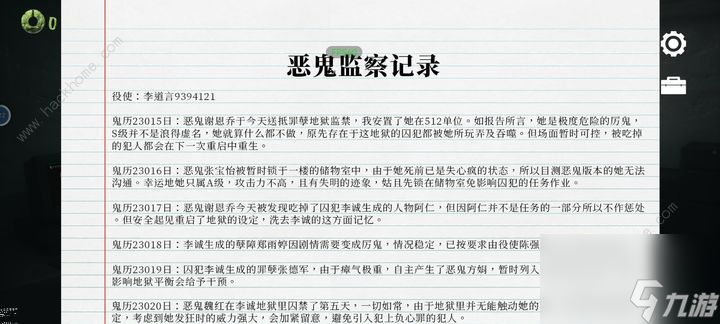 0
恶鬼监察记录
役使：李道言9394121
鬼历23015日：恶鬼谢恩乔于今天送抵罪孽地狱监禁，我安置了她在512单位。如报告所言，她是极度危险的厉鬼，
S级并不是浪得虚名，她就算什么都不做，原先存在于这地狱的囚犯都被她所玩弄及吞噬。但场面暂时可控，被吃掉
的犯人都会在下一次重启中重生。
鬼历23016日：恶鬼张宝怡被暂时锁于一楼的储物室中，由于她死前已是失心疯的状态，所以目测恶鬼版本的她无法
沟通。幸运地她只属A级，攻击力不高，且有失明的迹象，姑且先锁在储物室免影响囚犯的任务作业。
鬼历23017日：恶鬼谢恩乔今天被发现吃掉了囚犯李诚生成的人物阿仁，但因阿仁并不是任务的一部分所以不作惩处
。但安全起见重启了地狱的设定，洗去李诚的这方面记忆。
鬼历23018日：李诚生成的孽障郑雨婷因剧情需要变成厉鬼，情况稳定，已按要求由役使陈强
鬼历23019日：囚犯李诚生成的罪孽张德军，由于瘴气极重，自主产生了恶鬼方娟，暂时列入
影响地狱平衡会给予干预。
鬼历23020日：恶鬼魏红在李诚地狱里囚禁了第五天，一切如常，由于地狱里并无能触动她的
定，考虑到她发狂时的威力强大，会加紧留意，避免引入犯上负心罪的犯人。
www.hackhome.com
九游